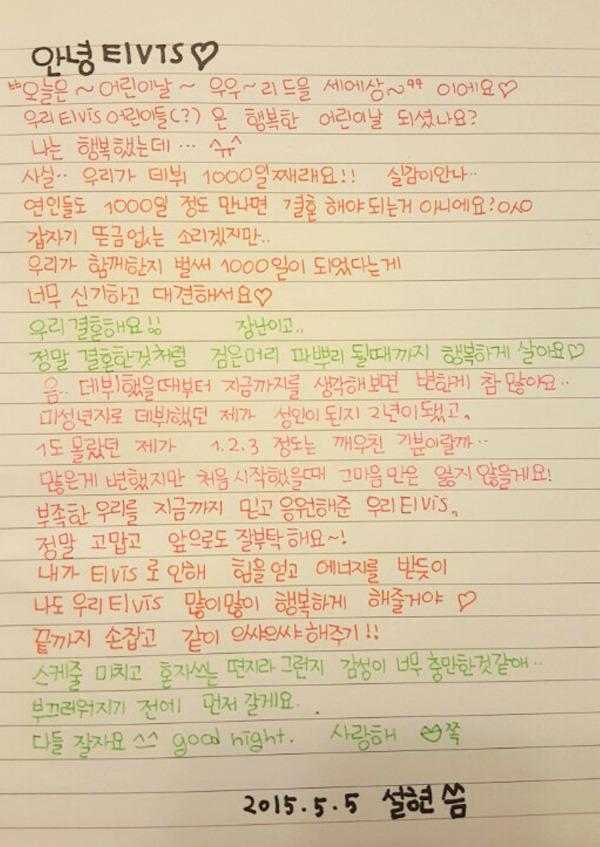 안녕 ElVIS♡
"오늘은~어린이날~ 우우~리드을 세에상~" 이에요♡
우리 Elvis 어린이들(?) 은 행복한 어린이날 되셨나요?
나는 행복했는데… ^ㅠ^
사실.. 우리가 데뷔 1000일째래요!! 실감이안나..
연인들도 1000일 정도 만나면 결혼 해야 되는거 아니에요?ㅇㅅㅇ
갑자기 뜬금없는 소리겠지만..
우리가 함께한지 벌써 1000일이 되었다는게
너무 신기하고 대견해서요♡
우리 결혼해요!! 장난이고..
정말 결혼한것처럼 검은머리 파뿌리 될때까지 행복하게 살아요♡
음.. 데뷔했을때부터 지금까지를 생각해보면 변한게 참 많아요..
미성년자로 데뷔했던 제가 성인이 된지 2년이 됐고,
1도 몰랐던 제가 1.2.3 정도는 깨우친 기분이랄까..
많은게 변했지만 처음 시작했을때 그마음 만은 잃지 않을게요!
부족한 우리를 지금까지 믿고 응원해준 우리 Elvis,
정말 고맙고 앞으로도 잘부탁 해요~!
내가 Elvis 로 인해 힘을 얻고 에너지를 받듯이
나도 우리 Elvis 많이많이 행복하게 해줄거야 ♡
끝까지 손잡고 같이 으쌰으쌰 해주기!!
스케줄 마치고 혼자쓰는 편지라 그런지 감성이 너무 충만한것같애..
부끄러워지기 전에 먼저 갈게요.
다들 잘자요 ^^ good night. 사랑해 쪽
2015.5.5 설현 씀